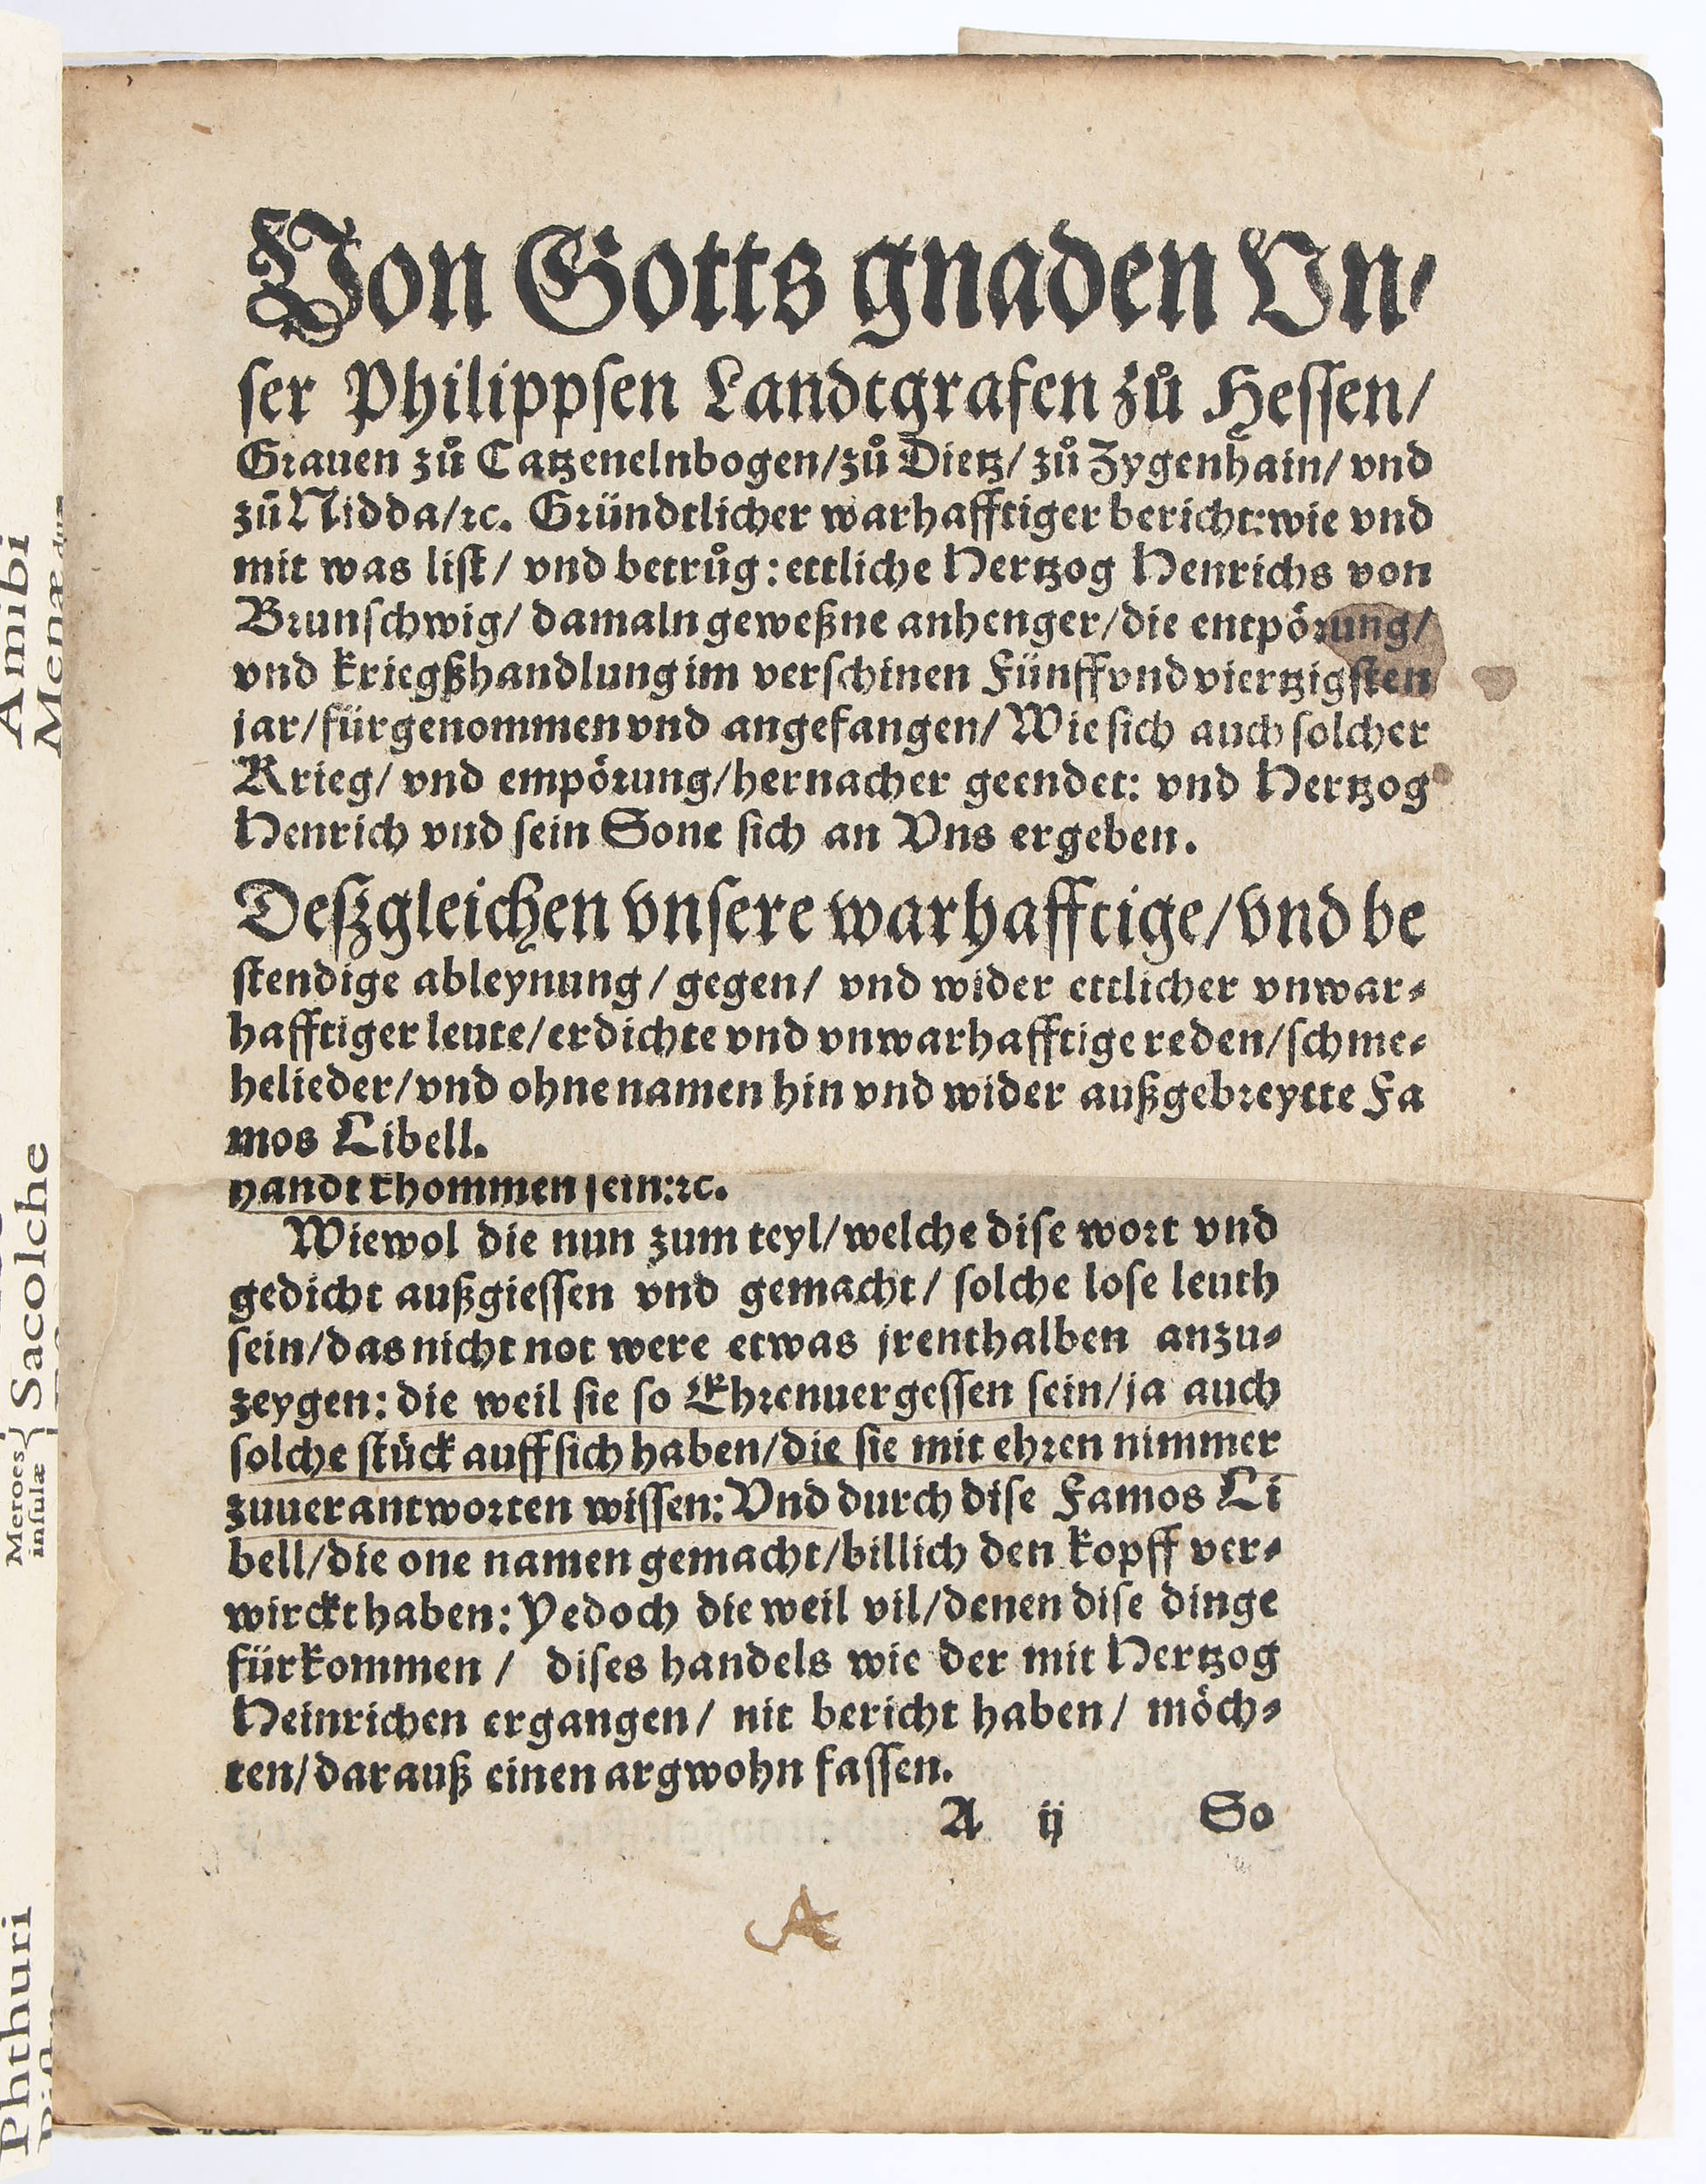 Von Gotts gnaden Vn⸗
ſer Philippſen Landtgrafen zů Heſſen/
Grauen zů Catzenelnbogen/zů Dietz/ zů Zygenhain/ vnd
zů Nidda/ꝛc. Gründtlicher warhafftiger bericht:wie vnd
mit was liſt/ vnd betrůg: ettliche Hertzog Henrichs von
Brunſchwig/ damaln geweßne anhenger/die entpörung/
vnd kriegßhandlung im verſchinen Fünff vnd viertzigſten
jar/fürgenommen vnd angefangen/ Wie ſich auch ſolcher
Krieg/ vnd empörung/hernacher geendet: vnd Hertzog
Henrich vnd ſein Sone ſich an Vns ergeben.
Deßgleichen vnſere warhafftige/vnd be
ſtendige ableynung/ gegen/ vnd wider ettlicher vnwar⸗
hafftiger leute/erdichte vnd vnwarhafftige reden/ſchme⸗
helieder/vnd ohne namen hin vnd wider außgebreytte Fa
mos Libell.
handt khommen ſein:ꝛc.
Wiewol die nun zum teyl/welche diſe wort vnd
gedicht außgieſſen vnd gemacht/ ſolche loſe leuth
ſein/das nicht not were etwas jrenthalben anzu⸗
zeygen: die weil ſie ſo Ehrenuergeſſen ſein/ja auch
ſolche ſtück auff ſich haben/die ſie mit ehren nimmer
zuuerantworten wiſſen: Vnd durch diſe Famos Li
bell/die one namen gemacht/billich den kopff ver⸗
wirckt haben: Yedoch die weil vil/denen diſe dinge
fürkommen / diſes handels wie der mit Hertzog
Heinrichen ergangen/ nit bericht haben/ möch⸗
ten/darauß einen argwohn faſſen.
A ij So
Amibi
Menæ
Sacolche
Meroes
inſulæ
Phthuri